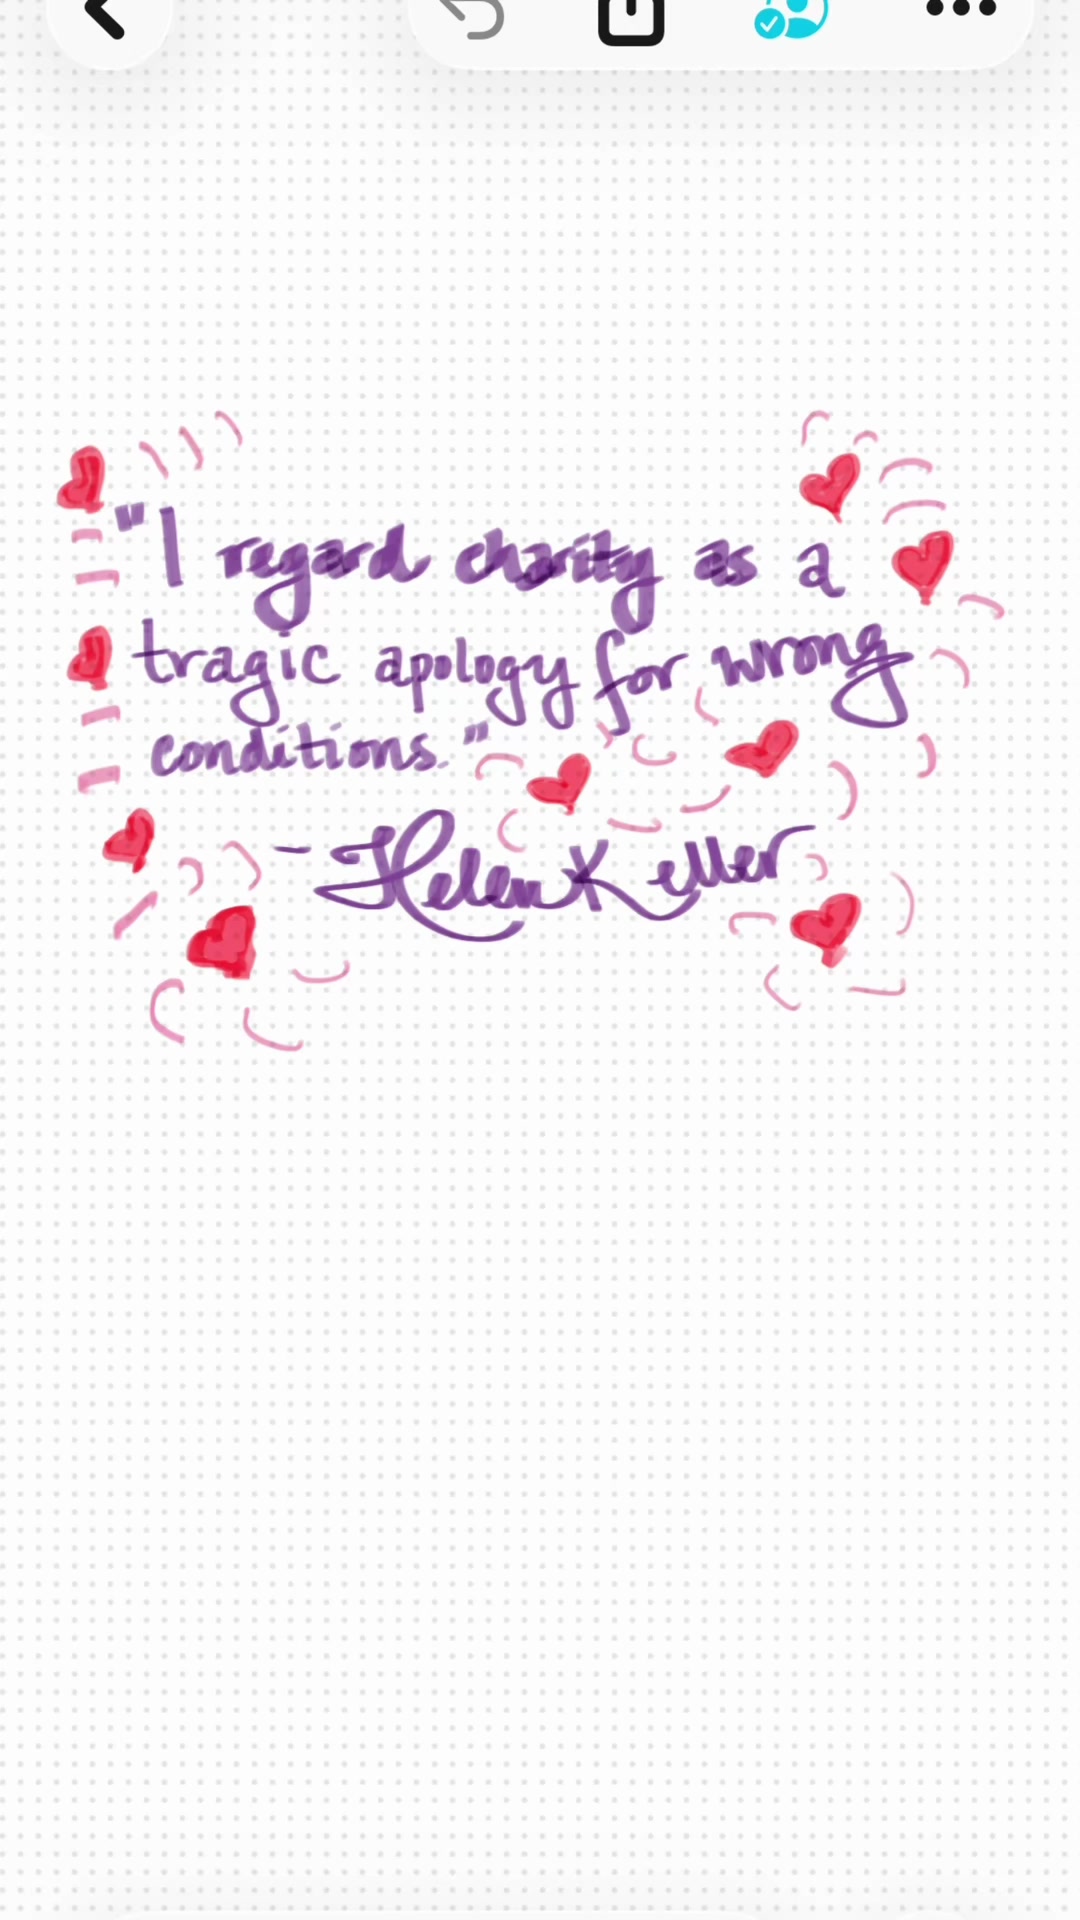 "I regard charity as a
tragic apology for wrong
conditions."
- Helen Keller